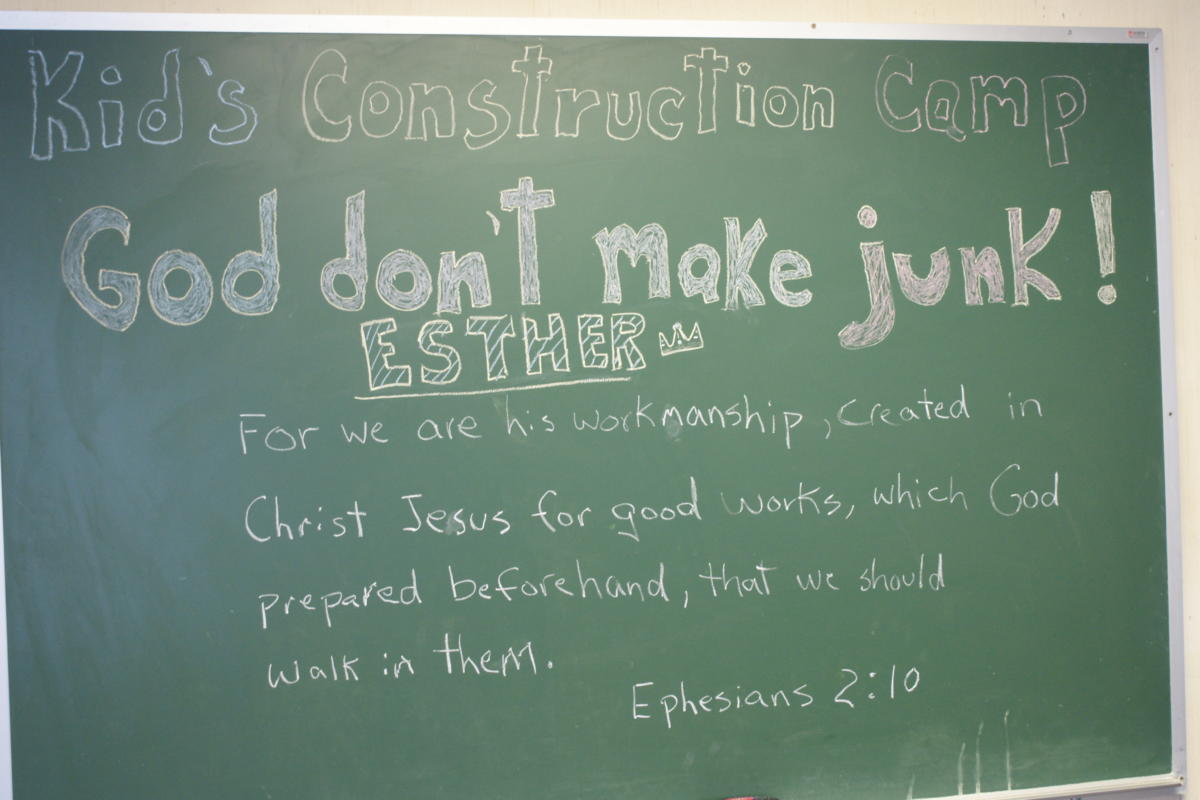 Kid's Construction Camp
God don't make junk!
ESTHER
For we are his workmanship, created in
Christ Jesus for good works, which God
prepared beforehand, that we should
walk in them.
Ephesians 2:10